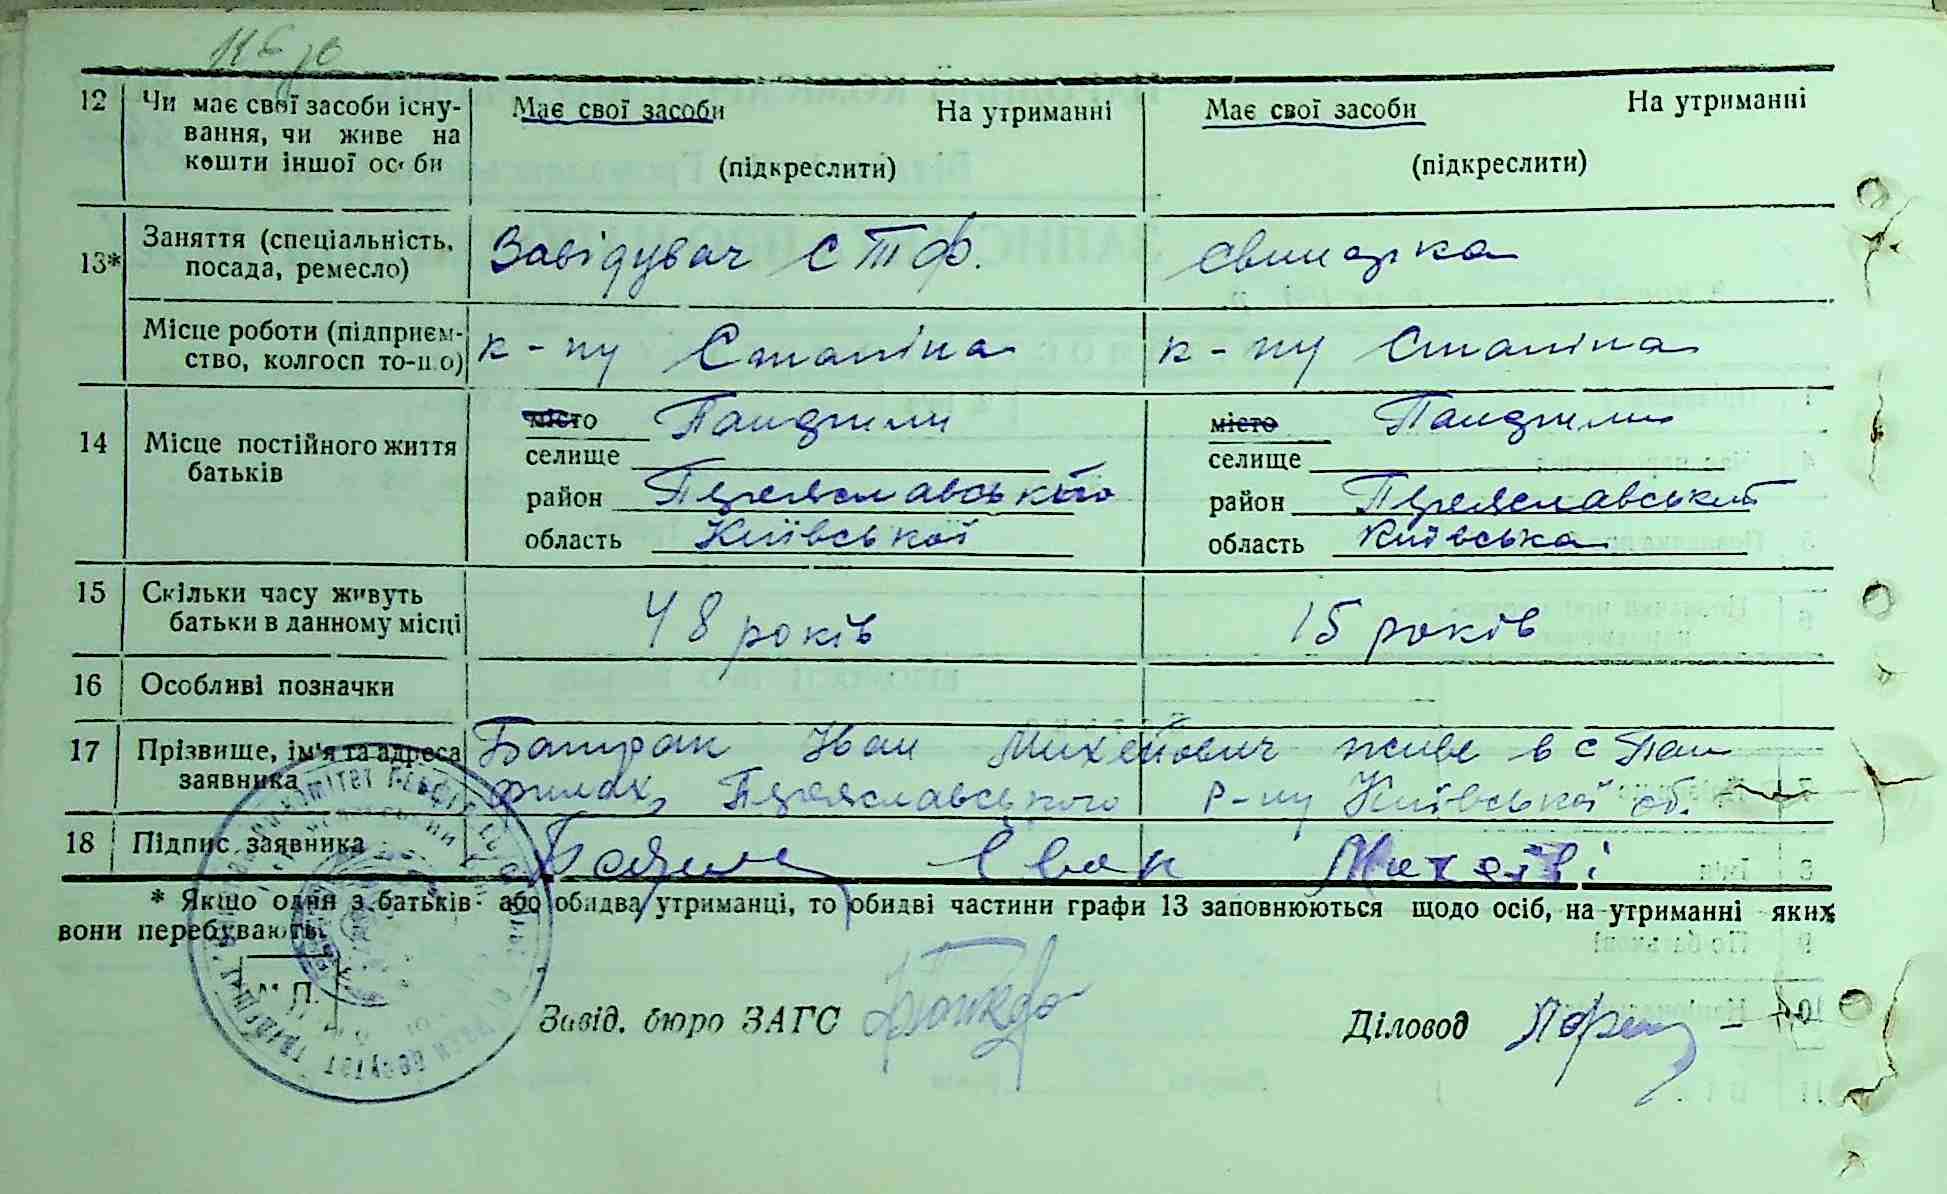 12 Чи має свої засоби існу- Має свої засоби На утриманні Має свої засоби На утриманні
вання, чи живе на
кошти іншої ос би (підкреслити) (підкреслити)
13* Заняття (спеціальність, посада, ремесло) Завідувач СТФ. свинарка
Місце роботи (підприєм- к-пу Сталіна к-пу Сталіна
ство, колгосп то-що)
місто Панфили місто Панфили
14 Місце постійного життя селище селище
батьків район Переяславського район Переяславський
область Київської область Київська
15 Скільки часу живуть 48 років 15 років
батьки в данному місці
16 Особливі позначки
17 Прізвище, ім'я та адреса Батрак Иван Михейович живе в с Пан
заявника филах, Переяславського р-ну Київської об.
18 Підпис заявника
* Якщо один з батьків або обидва утриманці, то обидві частини графи 13 заповнюються щодо осіб, на утриманні яких
вони перебувають.
М.П.
Завід. бюро ЗАГС Діловод